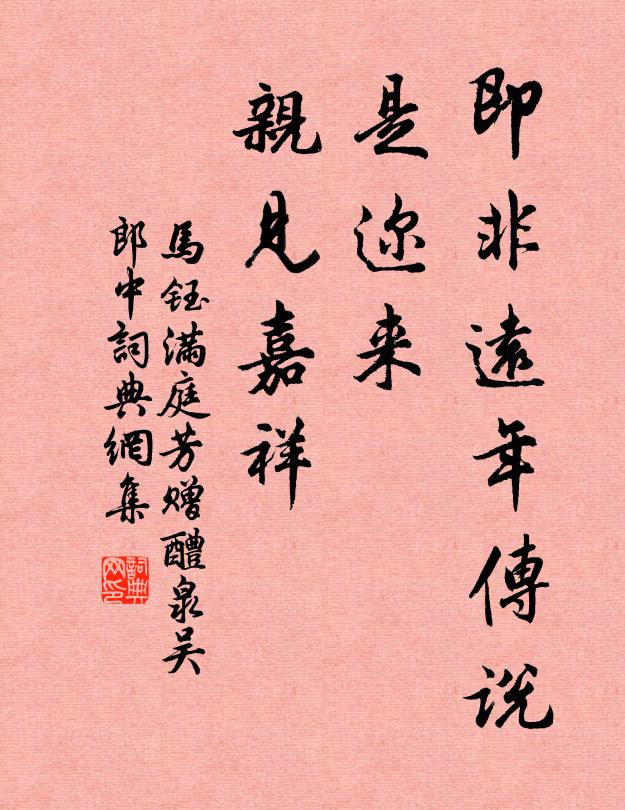 即非遠年傳説
是迩来
親見嘉祥
馬鈺滿庭芳赠醴泉吴
郎中詞典網集
詞典网印